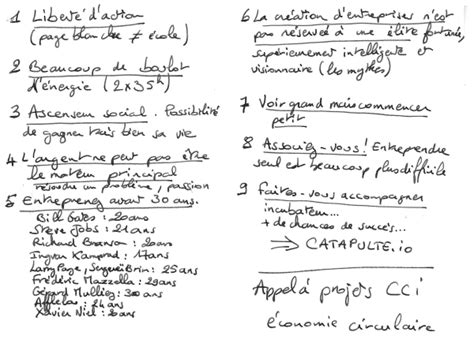 1 Liberté d'action
(page blanche ≠ école)
2 Beaucoup de boulot
d'énergie (2x35h)
3 Ascenseur social. Possibilité
de gagner très bien sa vie
4 L'argent ne peut pas être
le moteur principal
résoudre un problème, passion
5 Entreprenez avant 30 ans.
Bill Gates : 20 ans
Steve Jobs : 21 ans
Richard Branson : 20 ans
Ingvar Kamprad : 17 ans
Larry Page, Sergueï Brin : 25 ans
Frédéric Mazzella : 29 ans
Gérard Mulliez : 30 ans
Afflelou : 24 ans
Xavier Niel : 20 ans
6 La création d'entreprises n'est
pas réservée à une élite fortunée,
supérieurement intelligente et
visionnaire (les mythes)
7 Voir grand mais commencer
petit
8 Associez-vous ! Entreprendre
seul est beaucoup plus difficile
9 Faites-vous accompagner
incubateur...
+ de chances de succès...
⇒ CATAPULTE.io
Appel à projets CCi
économie circulaire